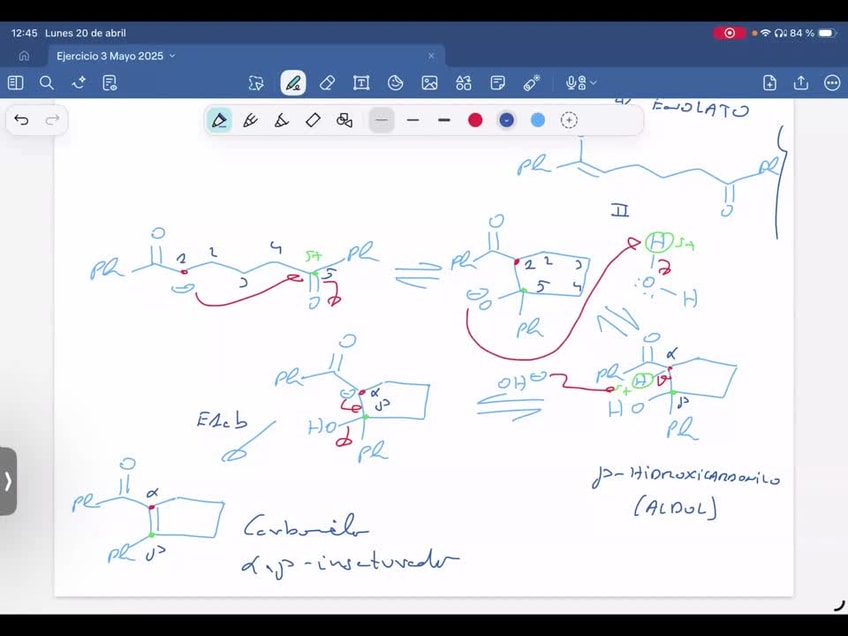 12:45 Lunes 20 de abril
84 %
Ejercicio 3 Mayo 2025
ENOLATO
Ph
Ph
O
II
O
Ph
1
2
3
4
δ+
5
Ph
O
⊖
O
Ph
1 2 3
5 4
⊖
O
Ph
H δ+
:O:
H
O
Ph
α
⊖
β
HO
Ph
E1cb
OH⊖
O
Ph
α
H
δ+
HO
β
Ph
β-HIDROXICARBONILO
(ALDOL)
O
Ph
α
Ph
β
Carbonilo
α,β-insaturador